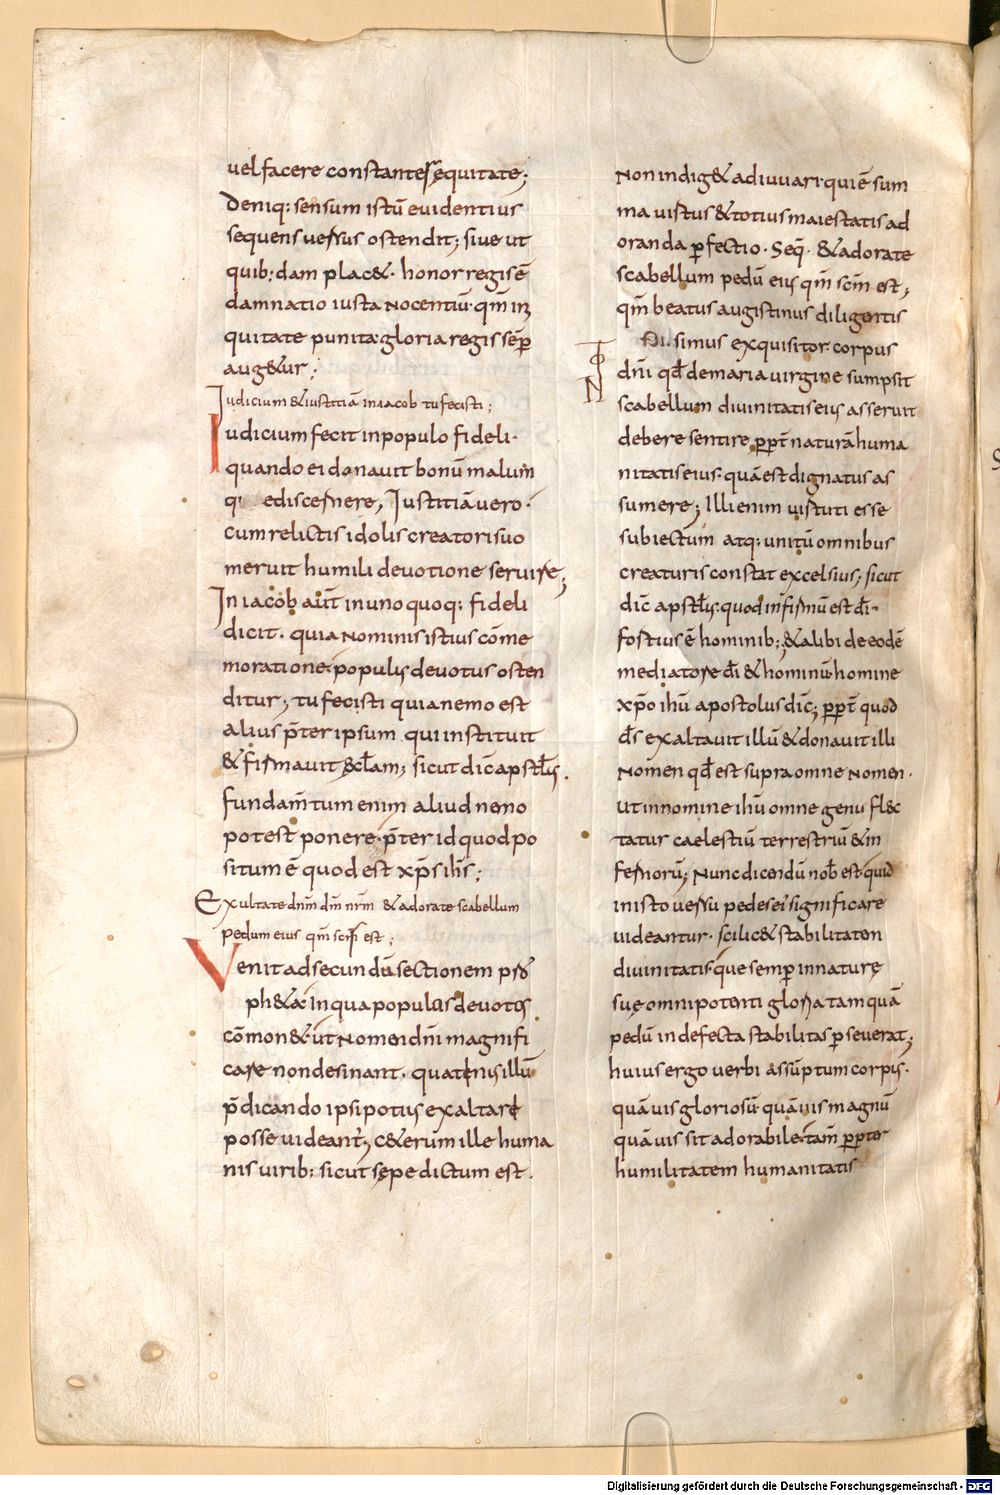 uel facere constanter ęquitate;
Deniq; sensum istū euidentius
sequens uersus ostendit; siue ut
quib;dam plac& · honor regis ē
damnatio iusta nocentiū · qm̄ in
quitate punita · gloria regis semp̄
aug&ur;
Iudicium & iustitiā in iacob tu fecisti;
Iudicium fecit in populo fideli ·
quando ei donauit bonū malum
q; discernere, Iustitiā uero ·
cum relictis idolis creatori suo
meruit humili deuotione seruire;
In iacob aūt in uno quoq; fideli
dicit · quia nominis istius cōme
moratione · populis deuotus osten
ditur; tu fecisti quia nemo est
alius p̄ter ipsum qui instituit
& firmauit &cl̄am; sicut dic̄ apstl̄s.
fundam̄tum enim aliud nemo
potest ponere · p̄ter id quod po
situm ē quod est xp̄s ih̄s;
Exultate dnm̄ dm̄ nrm̄ & adorate scabellum
pedum eius qm̄ scm̄ est;
Venit ad secundā sectionem psō
ph&a · in qua populus deuotus
cōmon& · ut nomen dn̄i magnifi
care non desinant · quatenus illū
p̄dicando ipsi potius exaltare
posse uideant̄; c&erum ille huma
nis uirib; sicut sępe dictum est.
Non indig& adiuuari · qui ē sum
ma uirtus & totius maiestatis ad
oranda p̄fectio · Seq̄ · & adorate
scabellum pedū eius qm̄ scm̄ est;
qm̄ beatus augustinus diligentis
simus exquisitor corpus
dn̄i qd̄ de maria uirgine sumpsit
scabellum diuinitatis eius asseruit
debere sentire p̄p̄t naturā huma
nitatis eius · quā est dignatus as
sumere; Illi enim uirtuti esse
subiectum atq; unitū omnibus
creaturis constat excelsius; sicut
dic̄ apstl̄s · quod infirmū est dī ·
fortius ē hominib; & alibi de eodē
mediatore dī & hominū homine
xp̄o ihū apostolus dic̄; p̄p̄t quod
ds̄ exaltauit illū & donauit illi
nomen qd̄ est supra omne nomen ·
ut in nomine ihū omne genu fl&c
tatur caelestiū terrestriū & in
fernorū; Nunc dicendū nob̄ est quid
in isto uersu pedes ei significare
uideantur · scilic& stabilitatem
diuinitatis · quę semp̄ in naturę
suę omnipotenti gloria tam quā
pedū indefecta stabilitas p̄seuerat;
huius ergo uerbi assūptum corpus ·
quā uis gloriosū · quā uis magnū
quā uis sit adorabile · tam̄ p̄p̄ter
humilitatem humanitatis